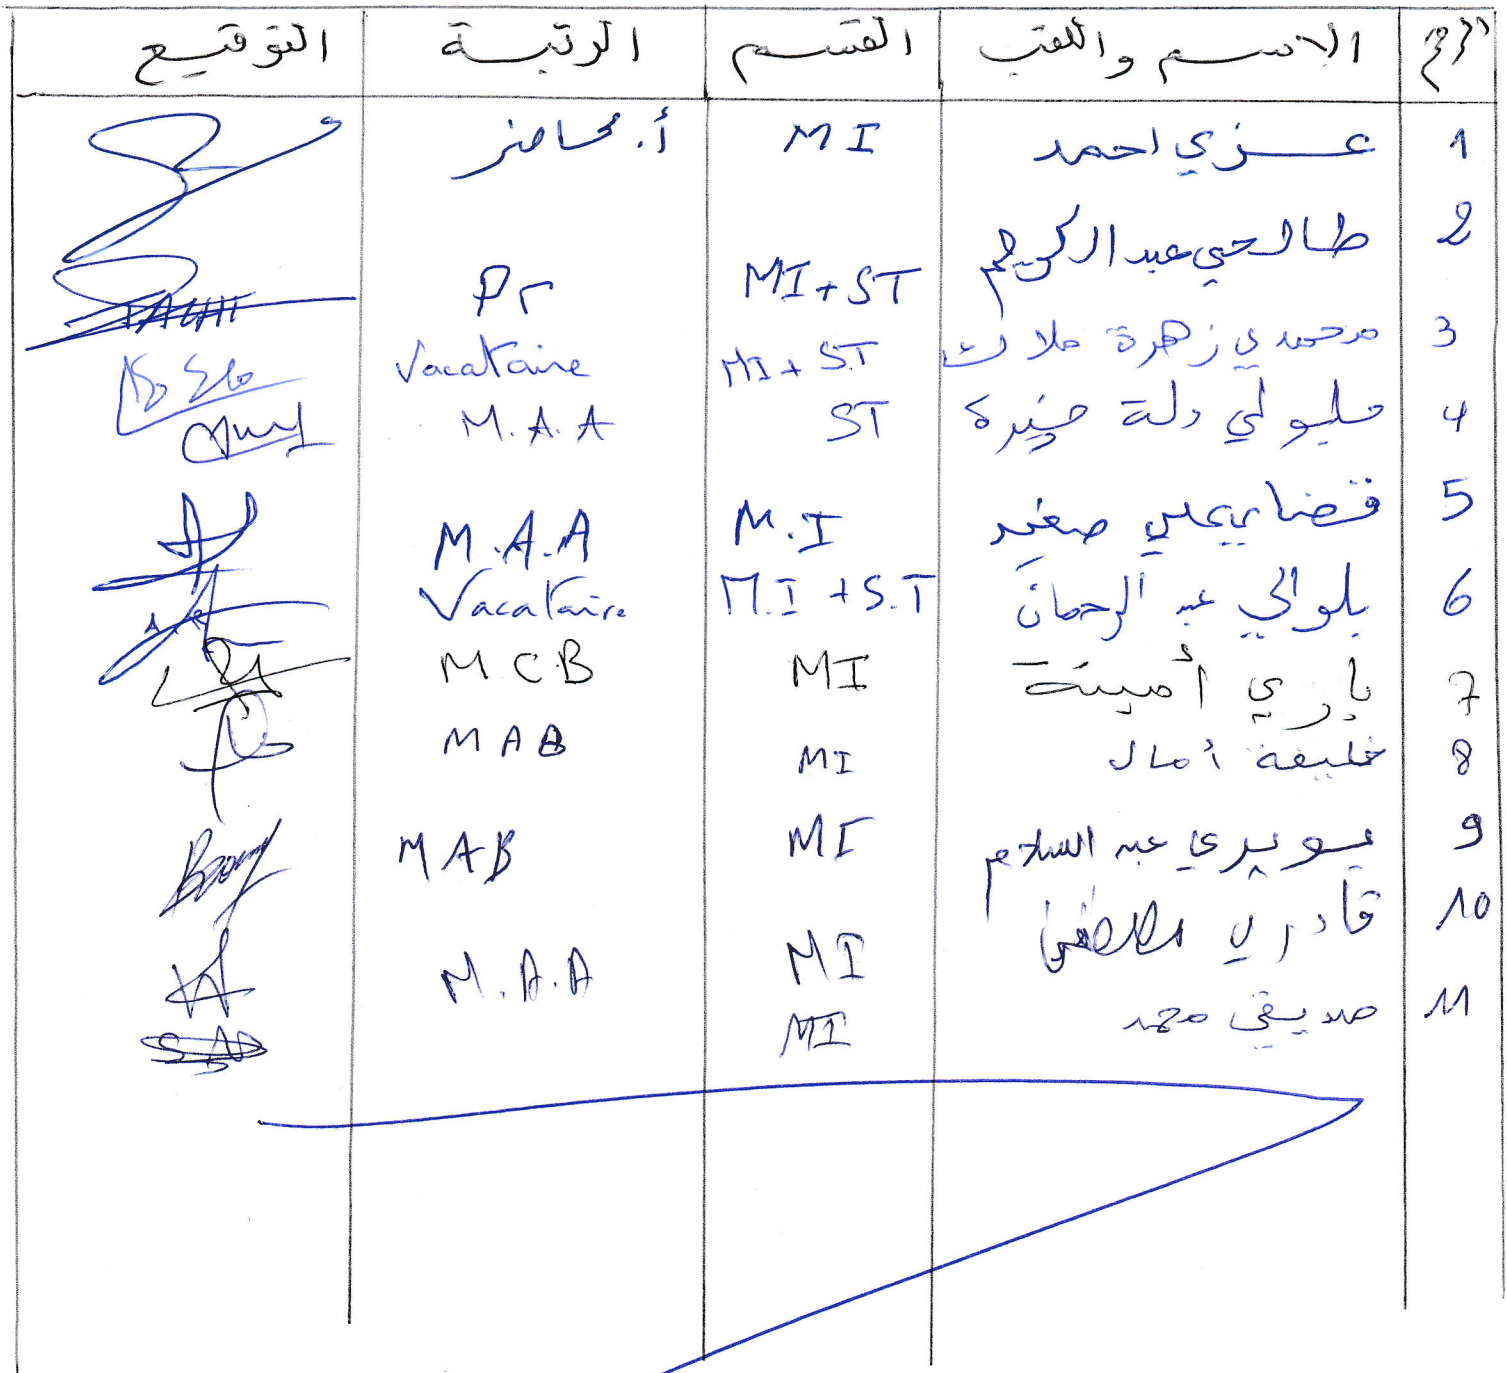 الرقم الاسم واللقب القسم الرتبة التوقيع
1 عزي احمد MI أ. محاضر
2 طالحي عبد الكريم MI + ST Pr
3 محمدي زهرة ملاك MI + ST Vacataire
4 ST M.A.A
5 صغير M.I M.A.A
6 بلوالي عبد الرحمان M.I + S.T Vacataire
7 باري أمينة MI MCB
8 خليفة أمال MI MAB
9 عبد السلام MI MAB
10 قادري مصطفى MI M.A.A
11 صديقي محمد MI